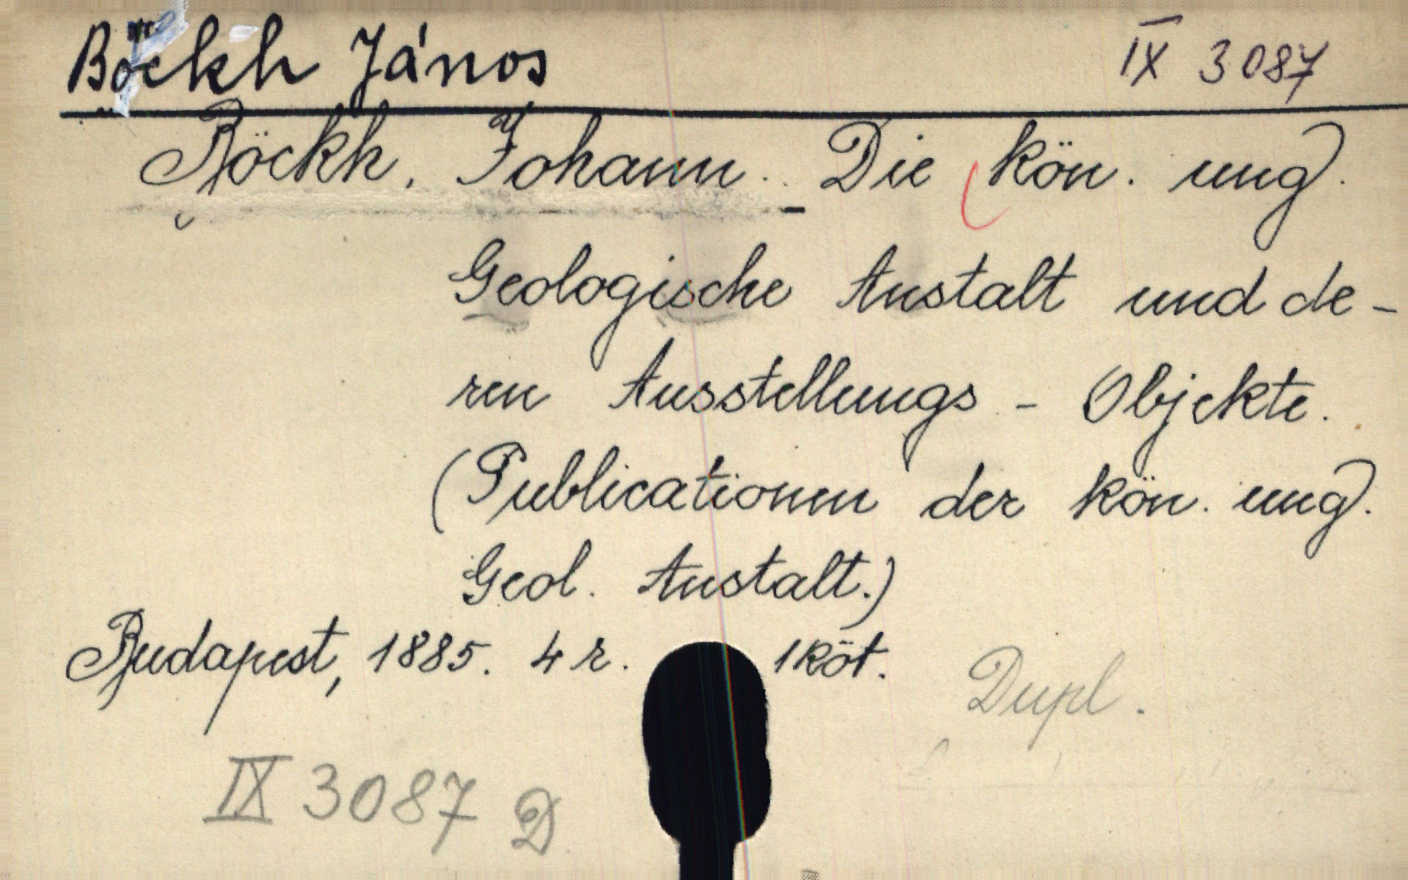 Böckh János
IX 3087
Böckh, Johann. Die kön. ung.
Geologische Anstalt und de-
ren Ausstellungs - Objekte.
(Publicationen der kön. ung.
Geol. Anstalt.)
Budapest, 1885. 4 r. 1 köt.
Dupl.
IX 3087 D